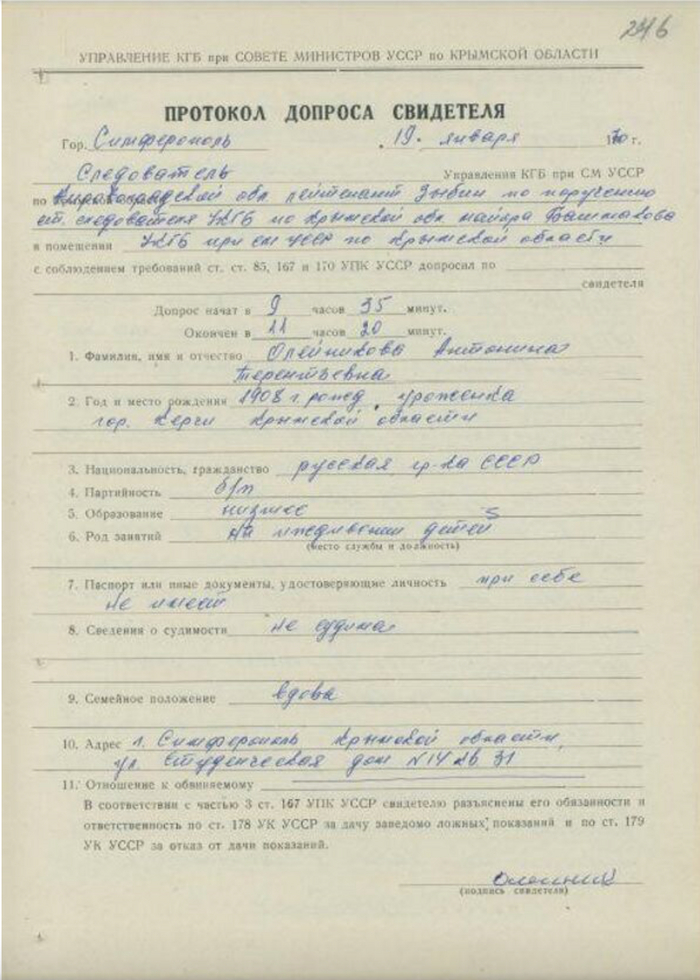 246
УПРАВЛЕНИЕ КГБ при СОВЕТЕ МИНИСТРОВ УССР по КРЫМСКОЙ ОБЛАСТИ
ПРОТОКОЛ ДОПРОСА СВИДЕТЕЛЯ
Гор. Симферополь 19. января 1970 г.
Следователь Управления КГБ при СМ УССР
по Кировоградской обл лейтенант Зыбин по поручению
ст. следователя УКГБ по Крымской обл майора Башмакова
в помещении УКГБ при СМ УССР по Крымской области
с соблюдением требований ст. ст. 85, 167 и 170 УПК УССР допросил по
свидетеля
Допрос начат в 9 часов 35 минут.
Окончен в 11 часов 20 минут.
1. Фамилия, имя и отчество Олейникова Антонина
Терентьевна
2. Год и место рождения 1908 г. рожд. уроженка
гор. Керчи Крымской области
3. Национальность, гражданство русская гр-ка СССР
4. Партийность б/п
5. Образование низшее
6. Род занятий на иждивении детей
(место службы и должность)
7. Паспорт или иные документы, удостоверяющие личность при себе
не имеет
8. Сведения о судимости не судима
9. Семейное положение вдова
10. Адрес г. Симферополь Крымской области,
ул. Студенческая дом N 14 кв 31
11. Отношение к обвиняемому
В соответствии с частью 3 ст. 167 УПК УССР свидетелю разъяснены его обязанности и
ответственность по ст. 178 УК УССР за дачу заведомо ложных показаний и по ст. 179
УК УССР за отказ от дачи показаний.
(подпись свидетеля)